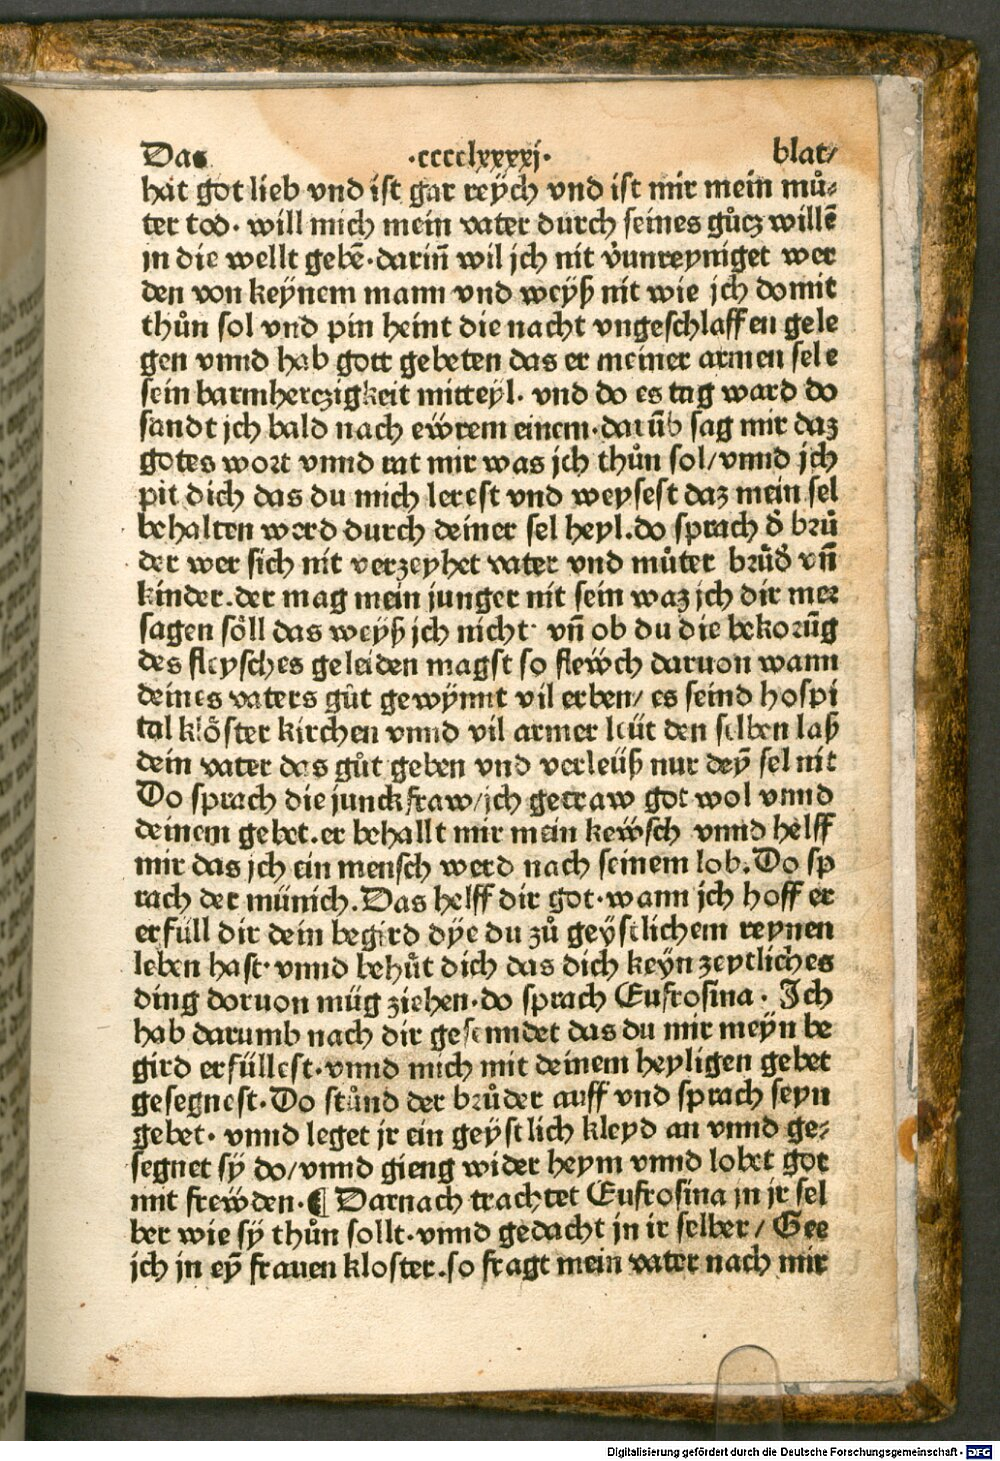 Das ·cccclxxxxj· blat/
hat got lieb vnd ist gar reÿch vnd ist mir mein můͦ-
ter tod· will mich mein vater durch seines gůcz willē
in die wellt gebē·dariñ wil jch nit v̓unreyniget wer
den von keÿnem mann vnd weÿß nit wie jch domit
thůn sol vnd pin heint die nacht vngeschlaffen gele
gen vnnd hab gott gebeten das er meiner armen sele
sein barmherczigkeit mitteÿl· vnd do es tag ward do
sandt jch bald nach eẅrem einem·darūb sag mir daz
gotes wort vnnd rat mir was jch thůn sol/vnnd jch
pit dich das du mich lerest vnd weysest daz mein sel
behalten werd durch deiner sel heyl.do sprach d̓ brů
der wer sich nit verzeyhet vater vnd můter brůd̓ vñ
kinder.der mag mein junger nit sein waz jch dir mer
sagen söll das weÿß jch nicht· vñ ob du die bekorūg
des fleysches geleiden magst so fleẅch daruon wann
deines vaters gůt gewÿnnt vil erben/ es seind hospi
tal klöster kirchen vnnd vil armer leüt den selben laß
dein vater das gůt geben vnd verleüß nur deȳ sel nit
Do sprach die junckfraw/jch getraw got wol vnnd
deinem gebet.er behallt mir mein keẅsch vnnd helff
mir das jch ein mensch werd nach seinem lob. Do sp
rach der münich. Das helff dir got·wann jch hoff er
erfüll dir dein begird dÿe du zů geÿstlichem reynen
leben hast· vnnd behůt dich das dich keÿn zeytliches
ding doruon müg ziehen·do sprach Eufrosina· Ich
hab darumb nach dir gesenndet das du mir meÿn be
gird erfüllest·vnnd mich mit deinem heyligen gebet
gesegnest·Do stůnd der brůder auff vnd sprach seyn
gebet· vnnd leget jr ein geÿstlich kleyd an vnnd ge-
segnet sÿ do/vnnd gieng wider heym vnnd lobet got
mit freẅden·¶ Darnach trachtet Eufrosina jn jr sel
ber wie sÿ thůn sollt·vnnd gedacht jn ir selber / Gee
jch jn eȳ frauen kloster.so fragt mein vater nach mir
Digitalisierung gefördert durch die Deutsche Forschungsgemeinschaft - DFG